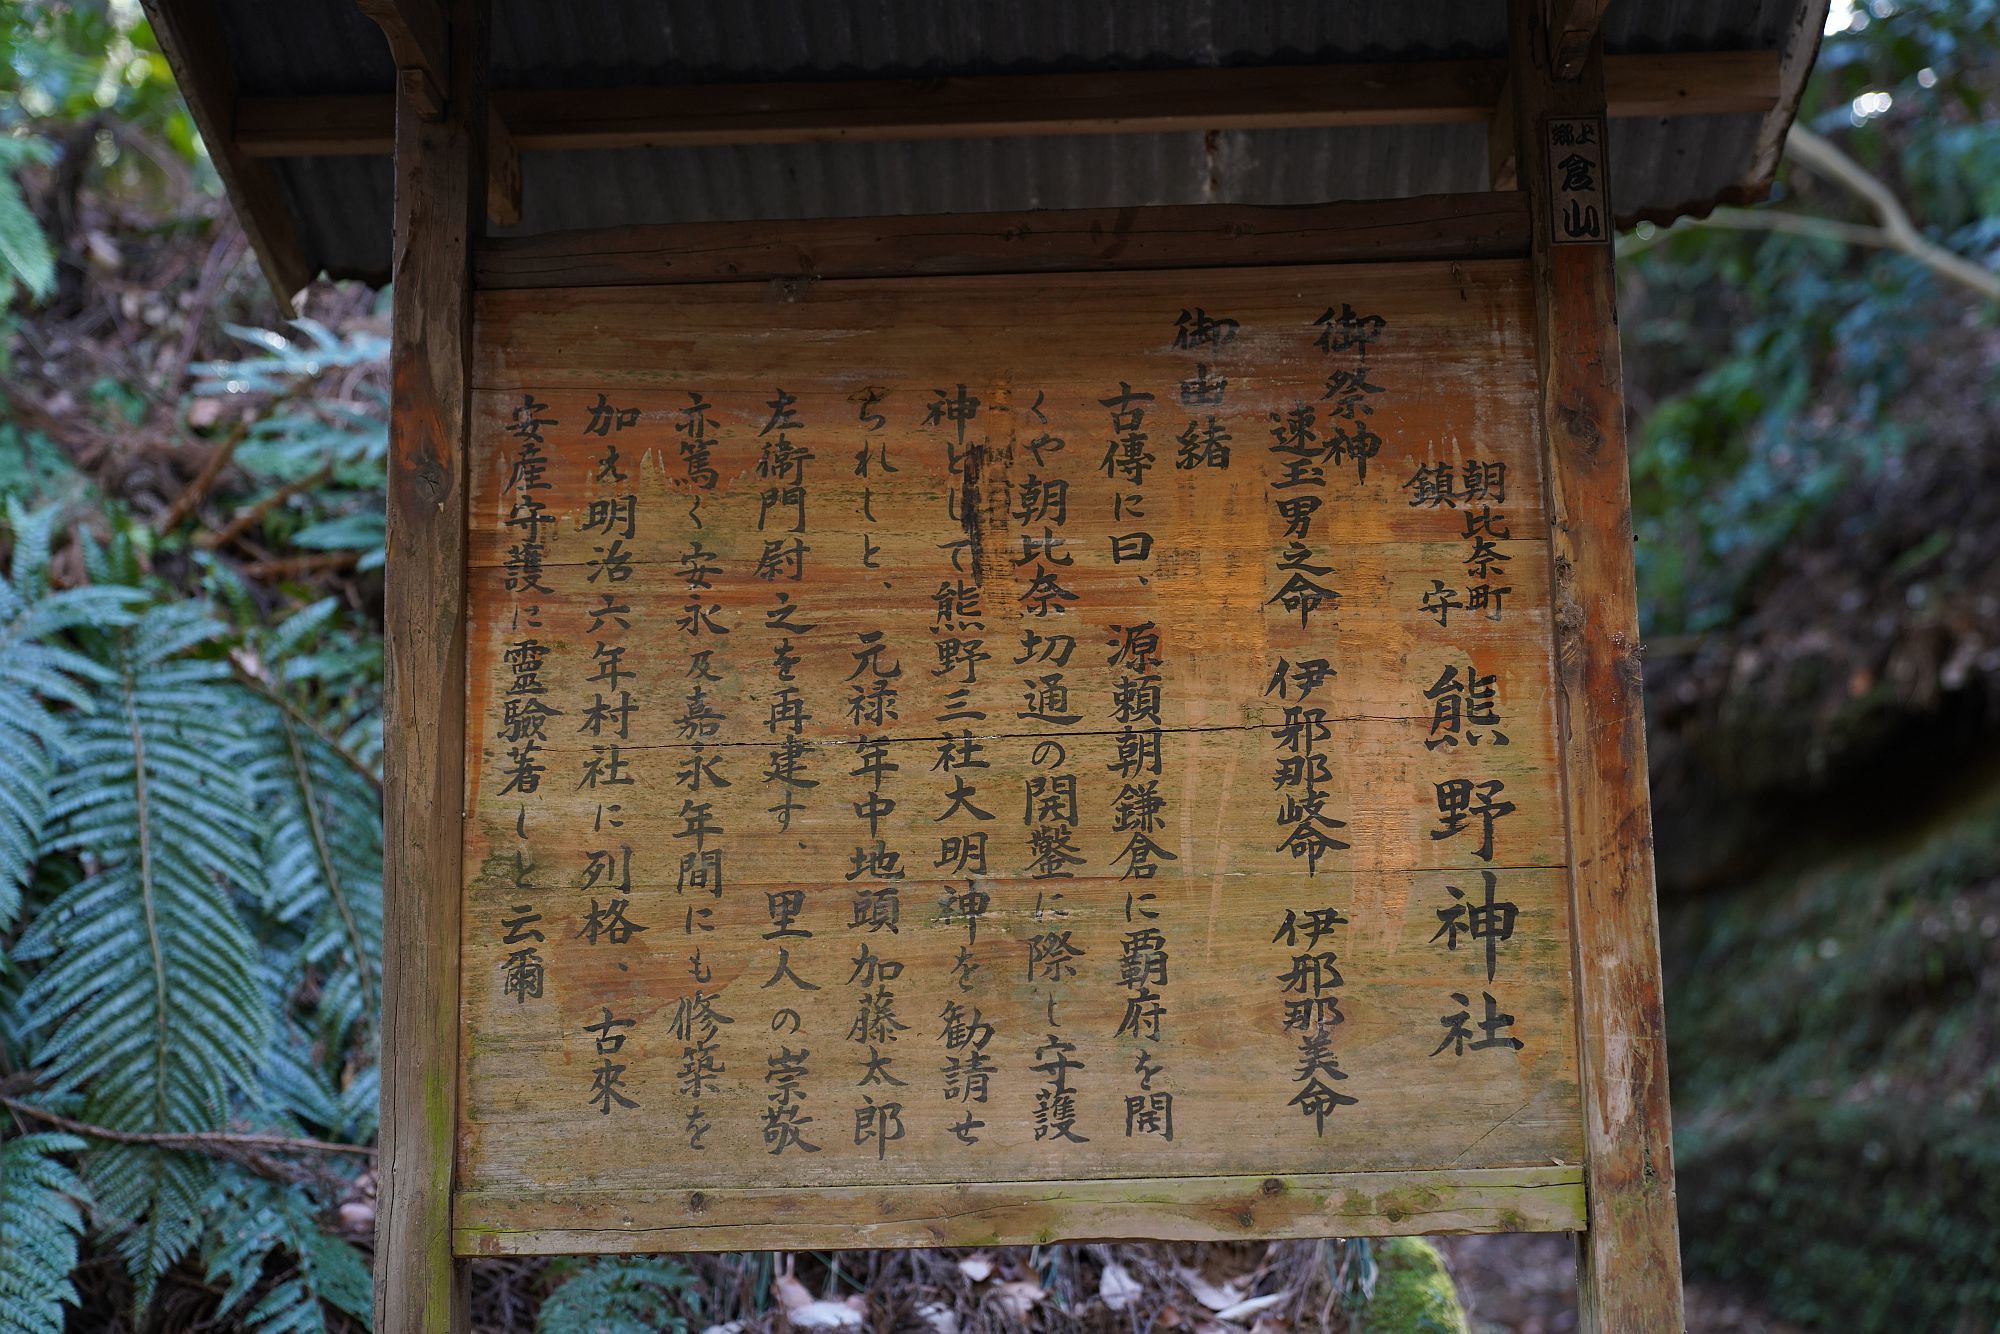 朝比奈町
鎮守
熊野神社
御祭神
速玉男之命 伊邪那岐命 伊邪那美命
御由緒
古傳に曰、源頼朝鎌倉に覇府を開
くや朝比奈切通の開鑿に際し守護
神として熊野三社大明神を勧請せ
られしと、元禄年中地頭加藤太郎
左衛門尉之を再建す、里人の崇敬
亦篤く安永及嘉永年間にも修築を
加え明治六年村社に列格、古來
安産守護に靈驗著しと云爾
上郷
倉山